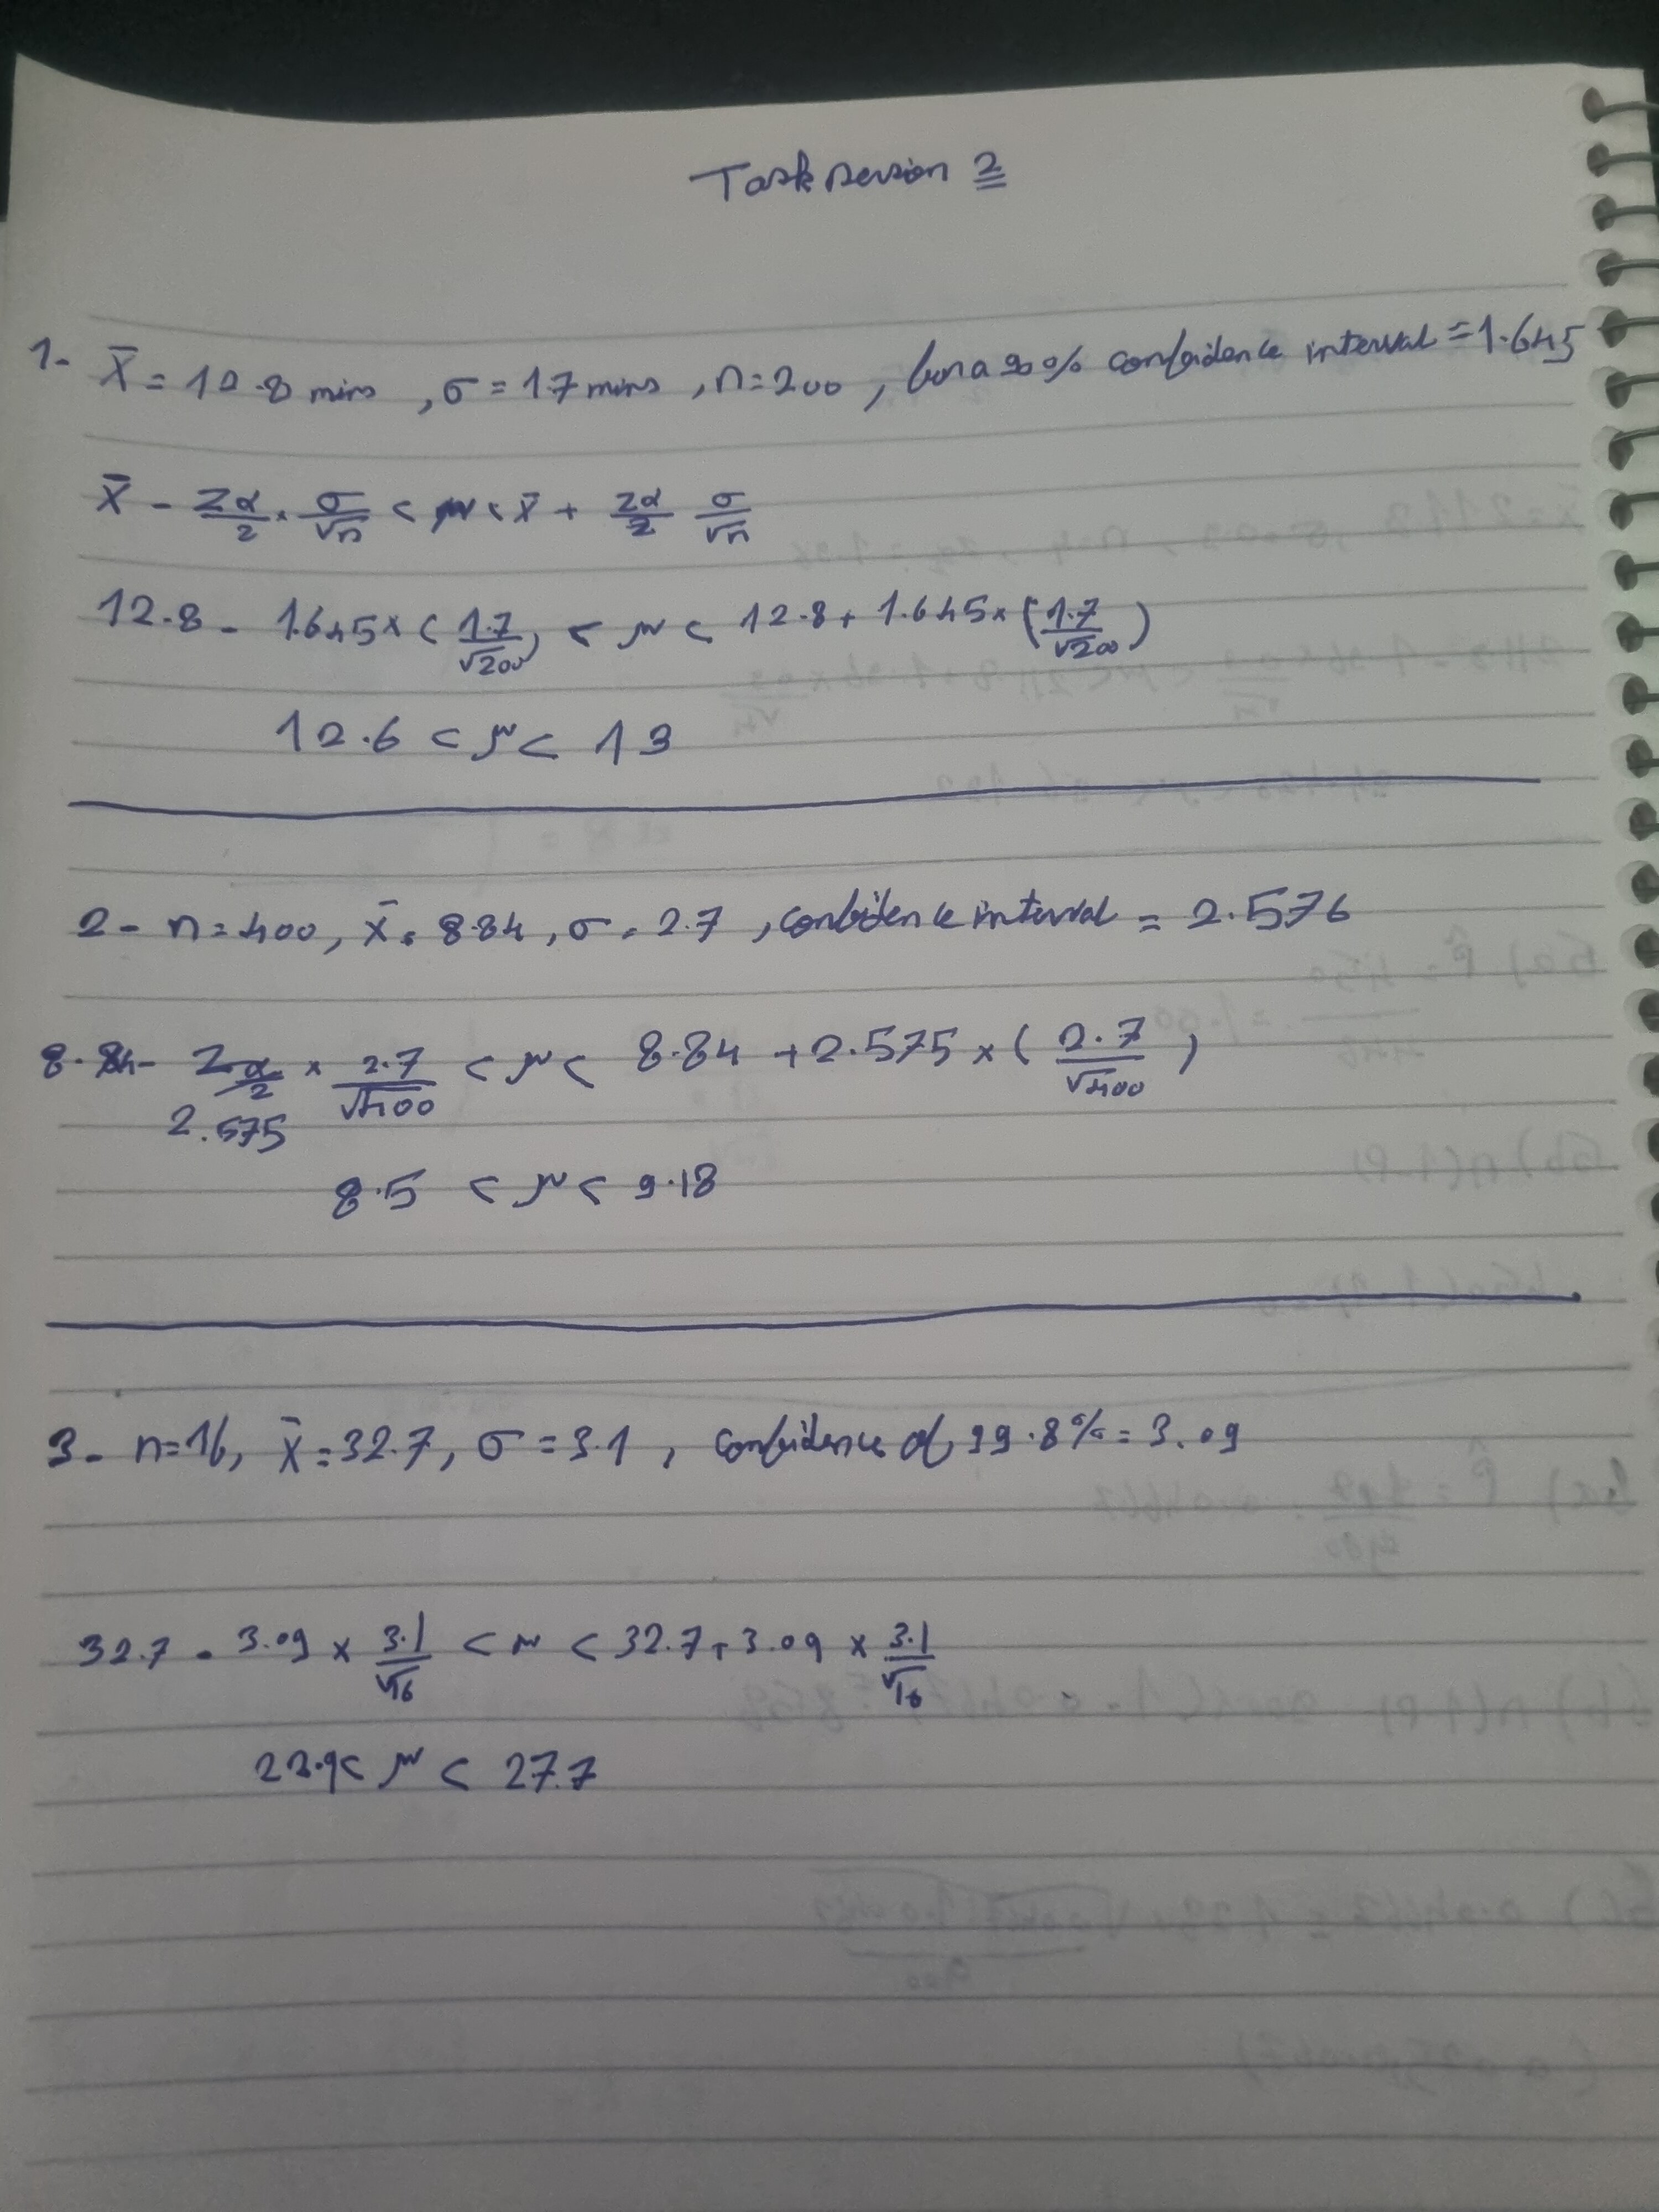 Task session 2
1- x̄ = 12.8 mins , σ = 1.7 mins , n = 200 , for a 90% confidence interval = 1.645
x̄ - Zα/2 × σ/√n < μ < x̄ + Zα/2 σ/√n
12.8 - 1.645 × (1.7/√200) < μ < 12.8 + 1.645 × (1.7/√200)
12.6 < μ < 13
2- n = 400, x̄ = 8.84 , σ = 2.7 , confidence interval = 2.576
8.84 - Zα/2 × 2.7/√400 < μ < 8.84 + 2.575 × (2.7/√400)
2.575
8.5 < μ < 9.18
3- n=16, x̄ = 32.7, σ = 3.1 , confidence of 99.8% = 3.09
32.7 - 3.09 × 3.1/√16 < μ < 32.7 + 3.09 × 3.1/√16
< μ < 27.7